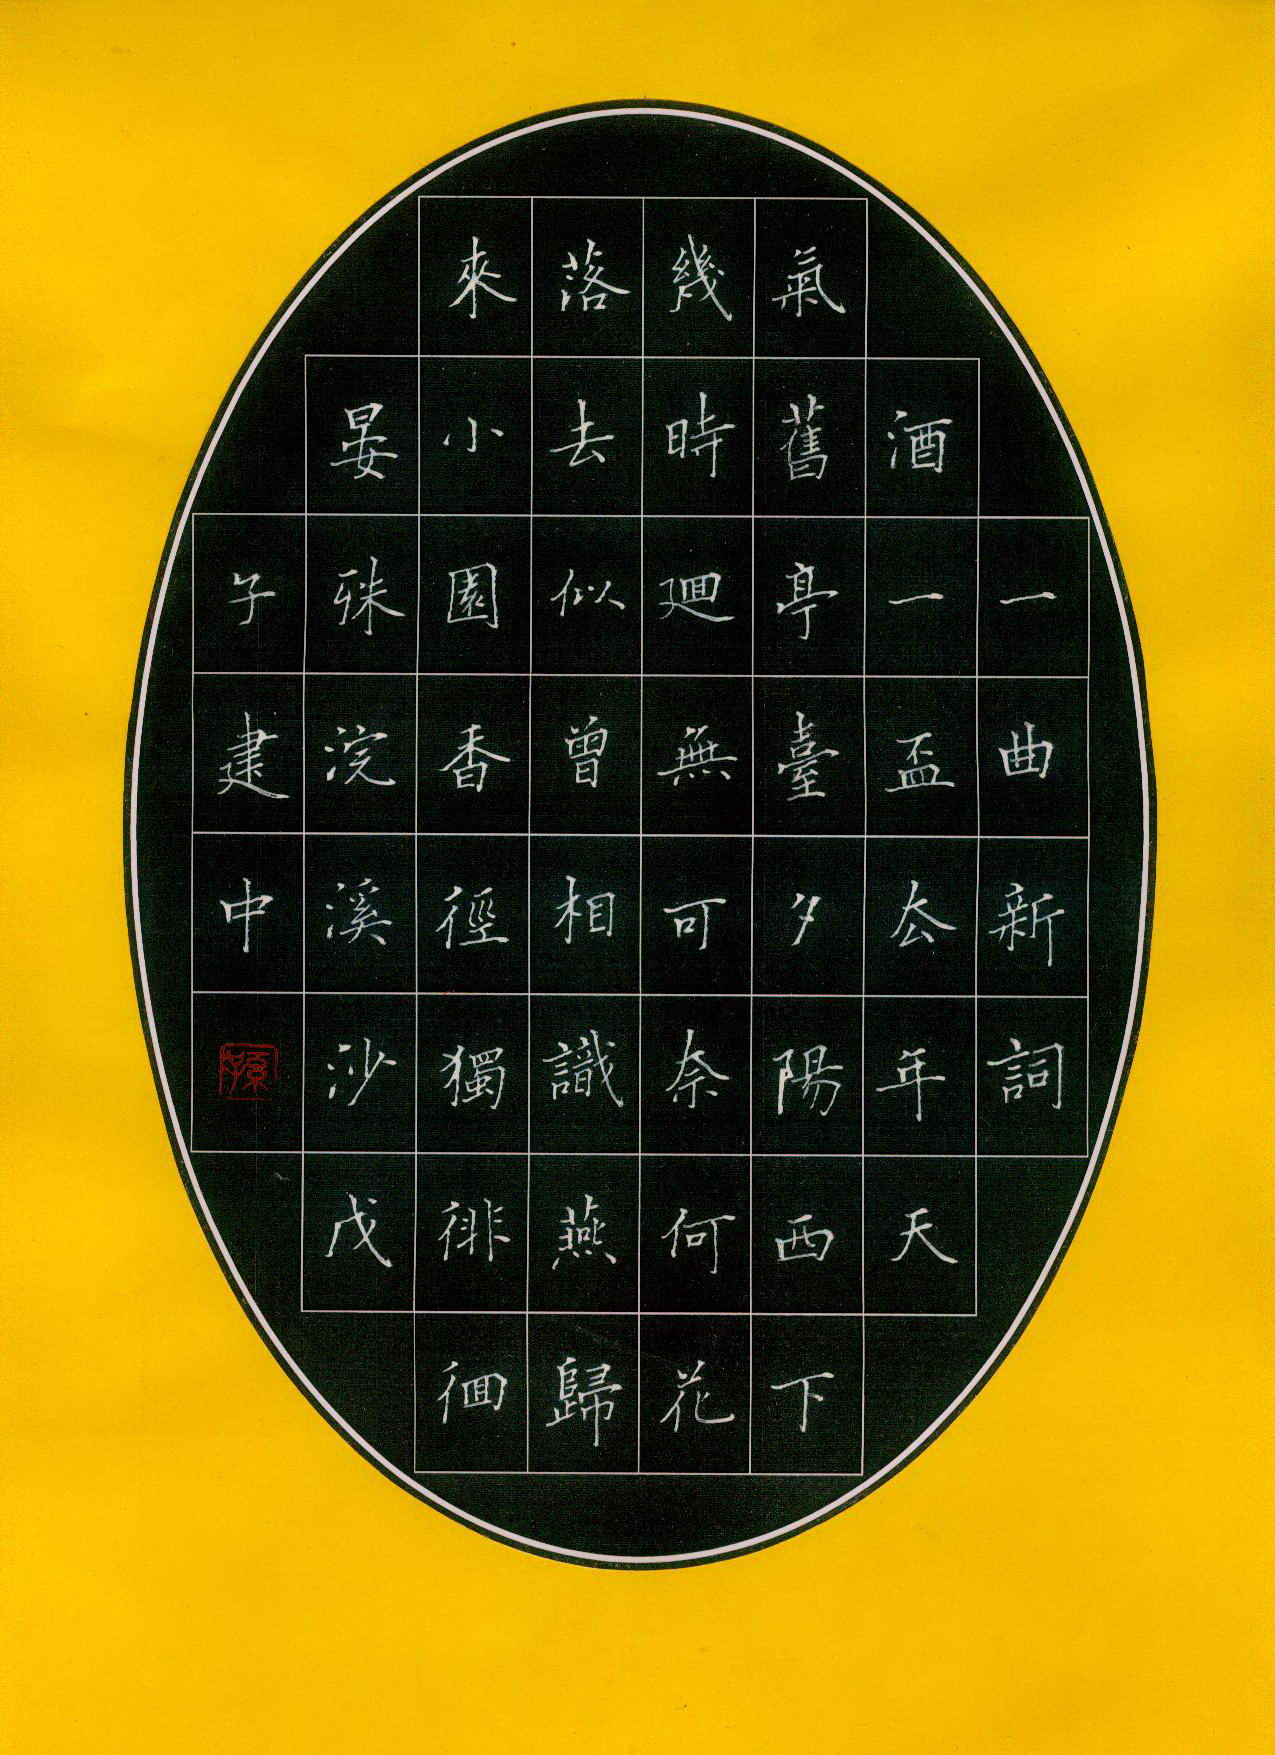 一曲新詞
酒一盃厺年天
氣舊亭臺夕陽西下
幾時廻無可奈何花
落去似曾相識燕歸
來小園香徑獨徘徊
晏殊浣溪沙戊
子建中
孫